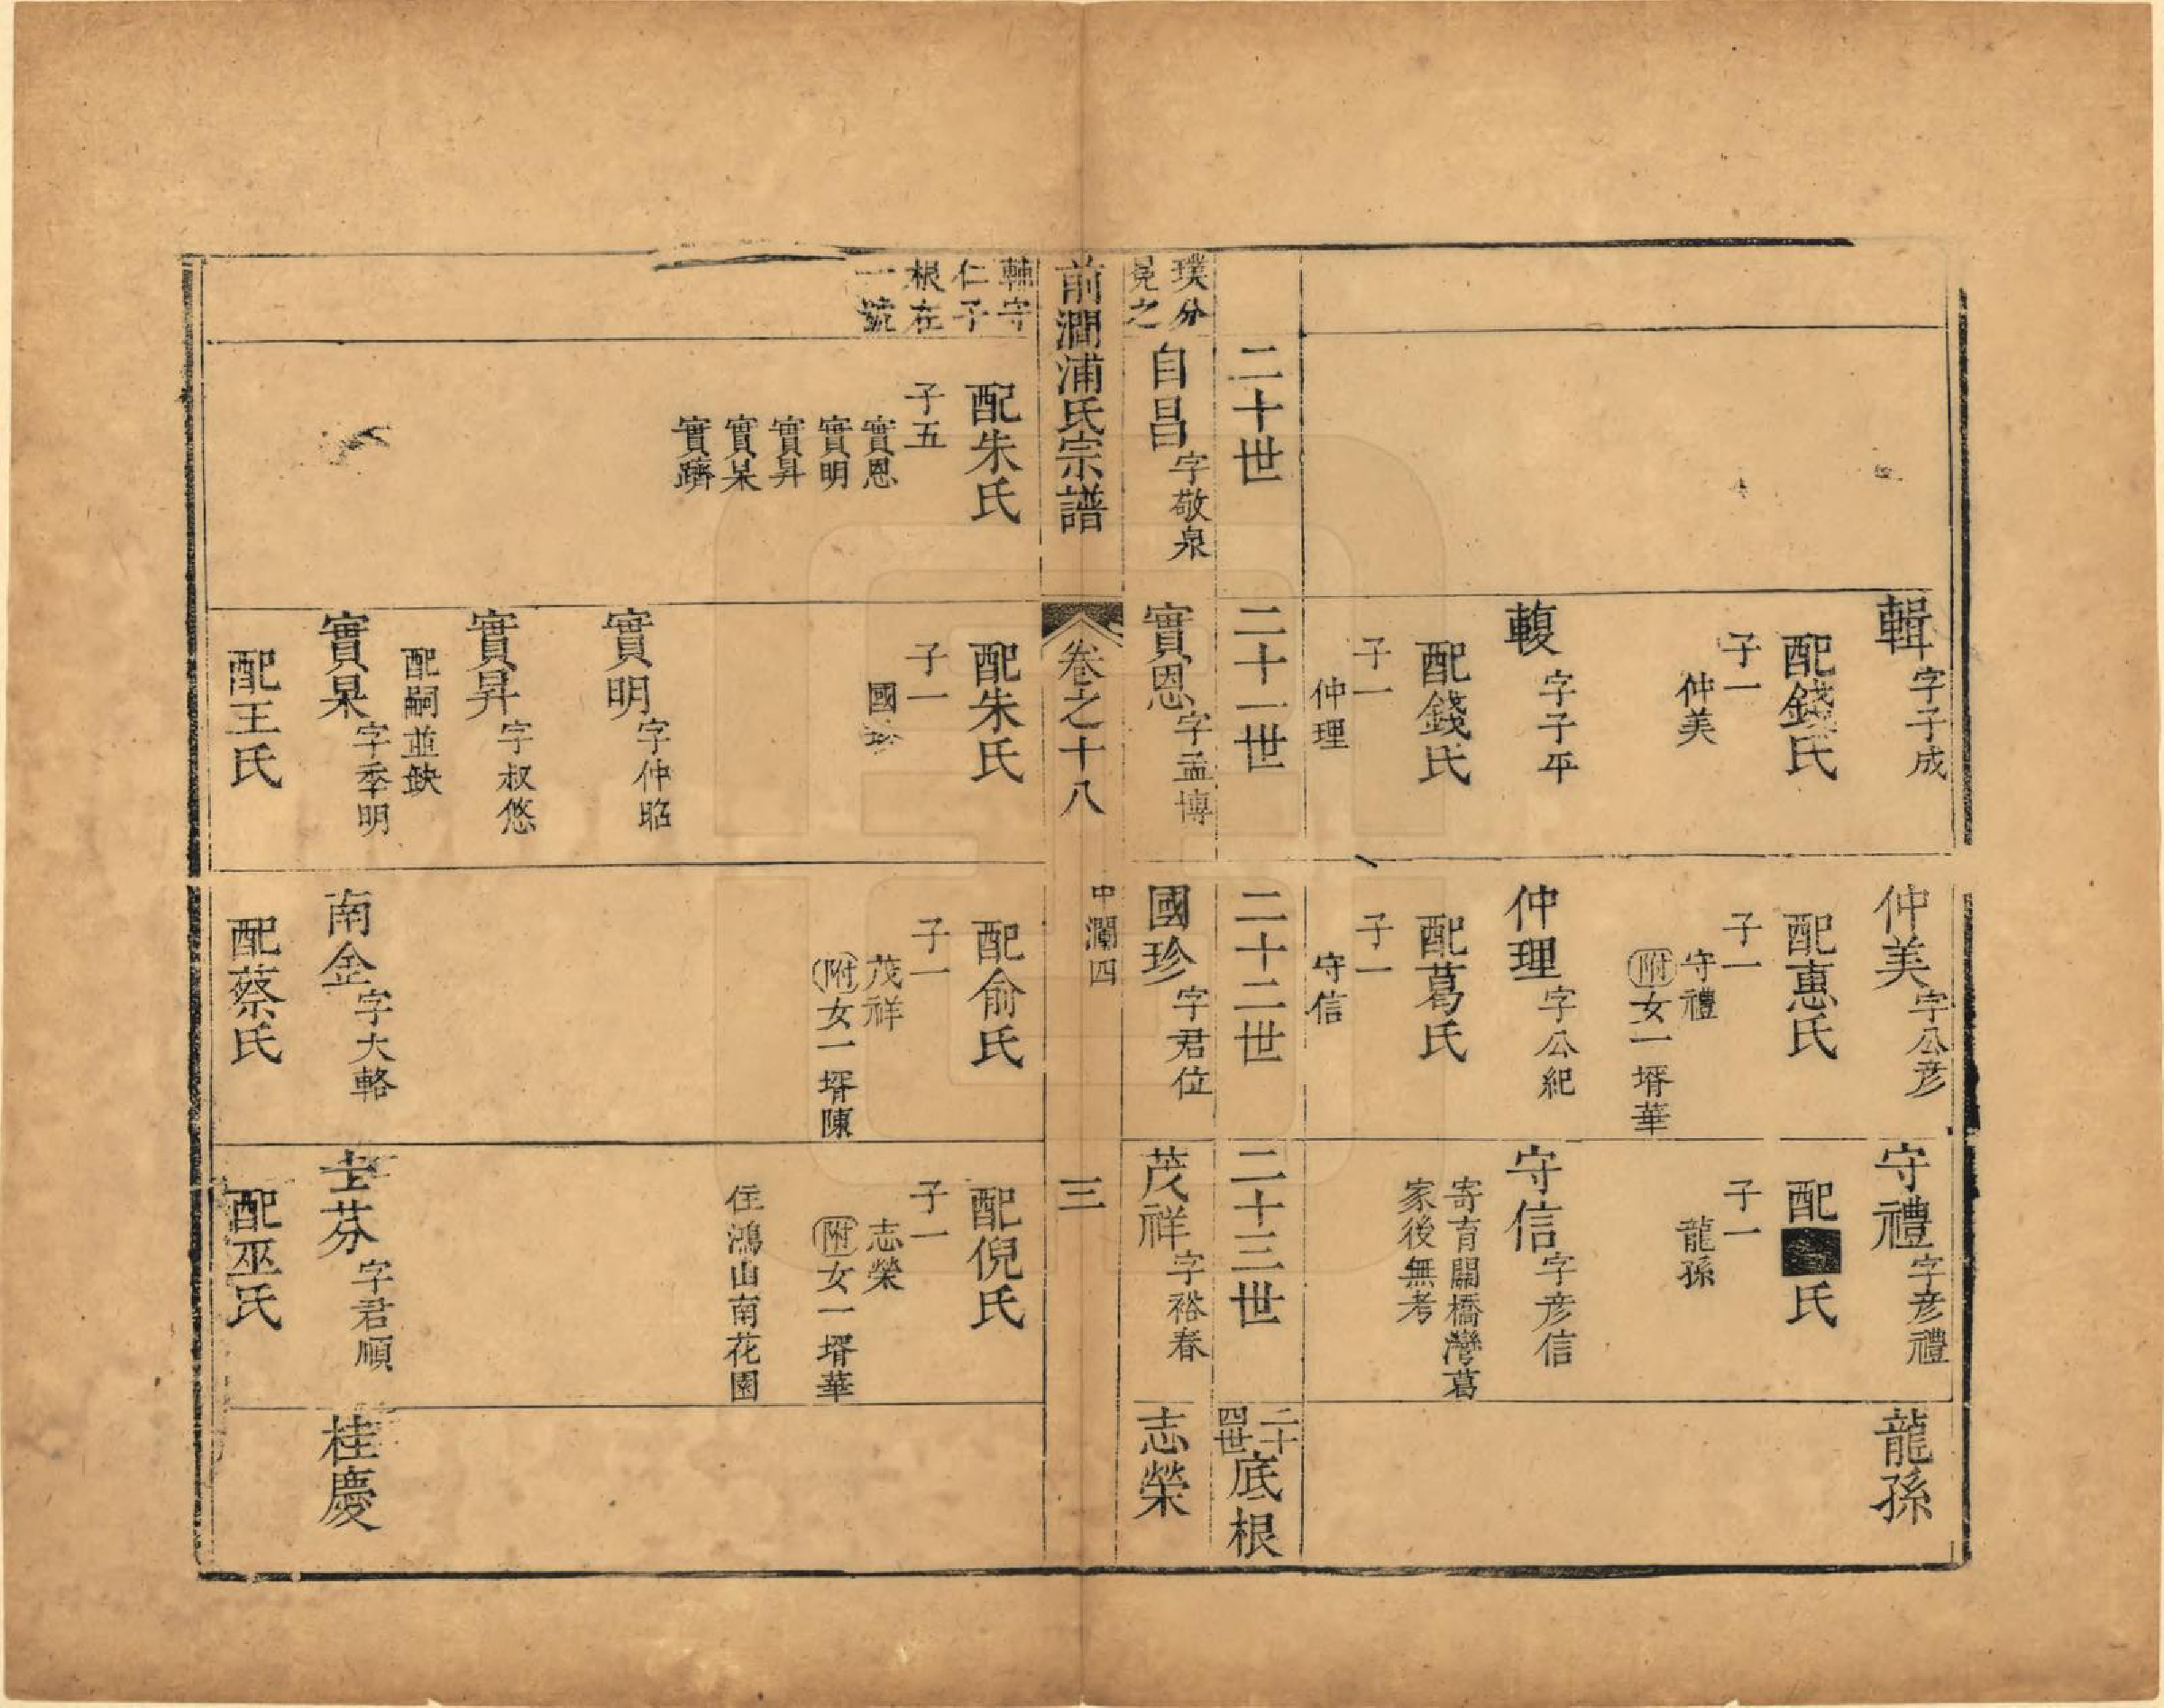 輯字子成
配錢氏
子一
仲美
輹字子平
配錢氏
子一
仲理
仲美字公彥
配惠氏
子一
守禮
附女一壻華
仲理字公紀
配葛氏
子一
守信
守禮字彥禮
配■氏
子一
龍孫
守信字彥信
寄育關橋灣葛
家後無考
龍孫
二十世
二十一世
二十二世
二十三世
二十四世底根
璞分
晃之
自昌字敬泉
實恩字孟博
國珍字君位
茂祥字裕春
志榮
前澗浦氏宗譜
卷之十八
中瀾四
三
守
仁子
根在
一號
配朱氏
子五
實恩
實明
實昇
實杲
實躋
配朱氏
子一
國珍
實明字仲昭
實昇字叔悠
配嗣並缺
實杲字季明
配王氏
配俞氏
子一
茂祥
附女一壻陳
南金字大輅
配蔡氏
配倪氏
子一
志榮
附女一壻華
住鴻山南花園
士芬字君順
配巫氏
桂慶